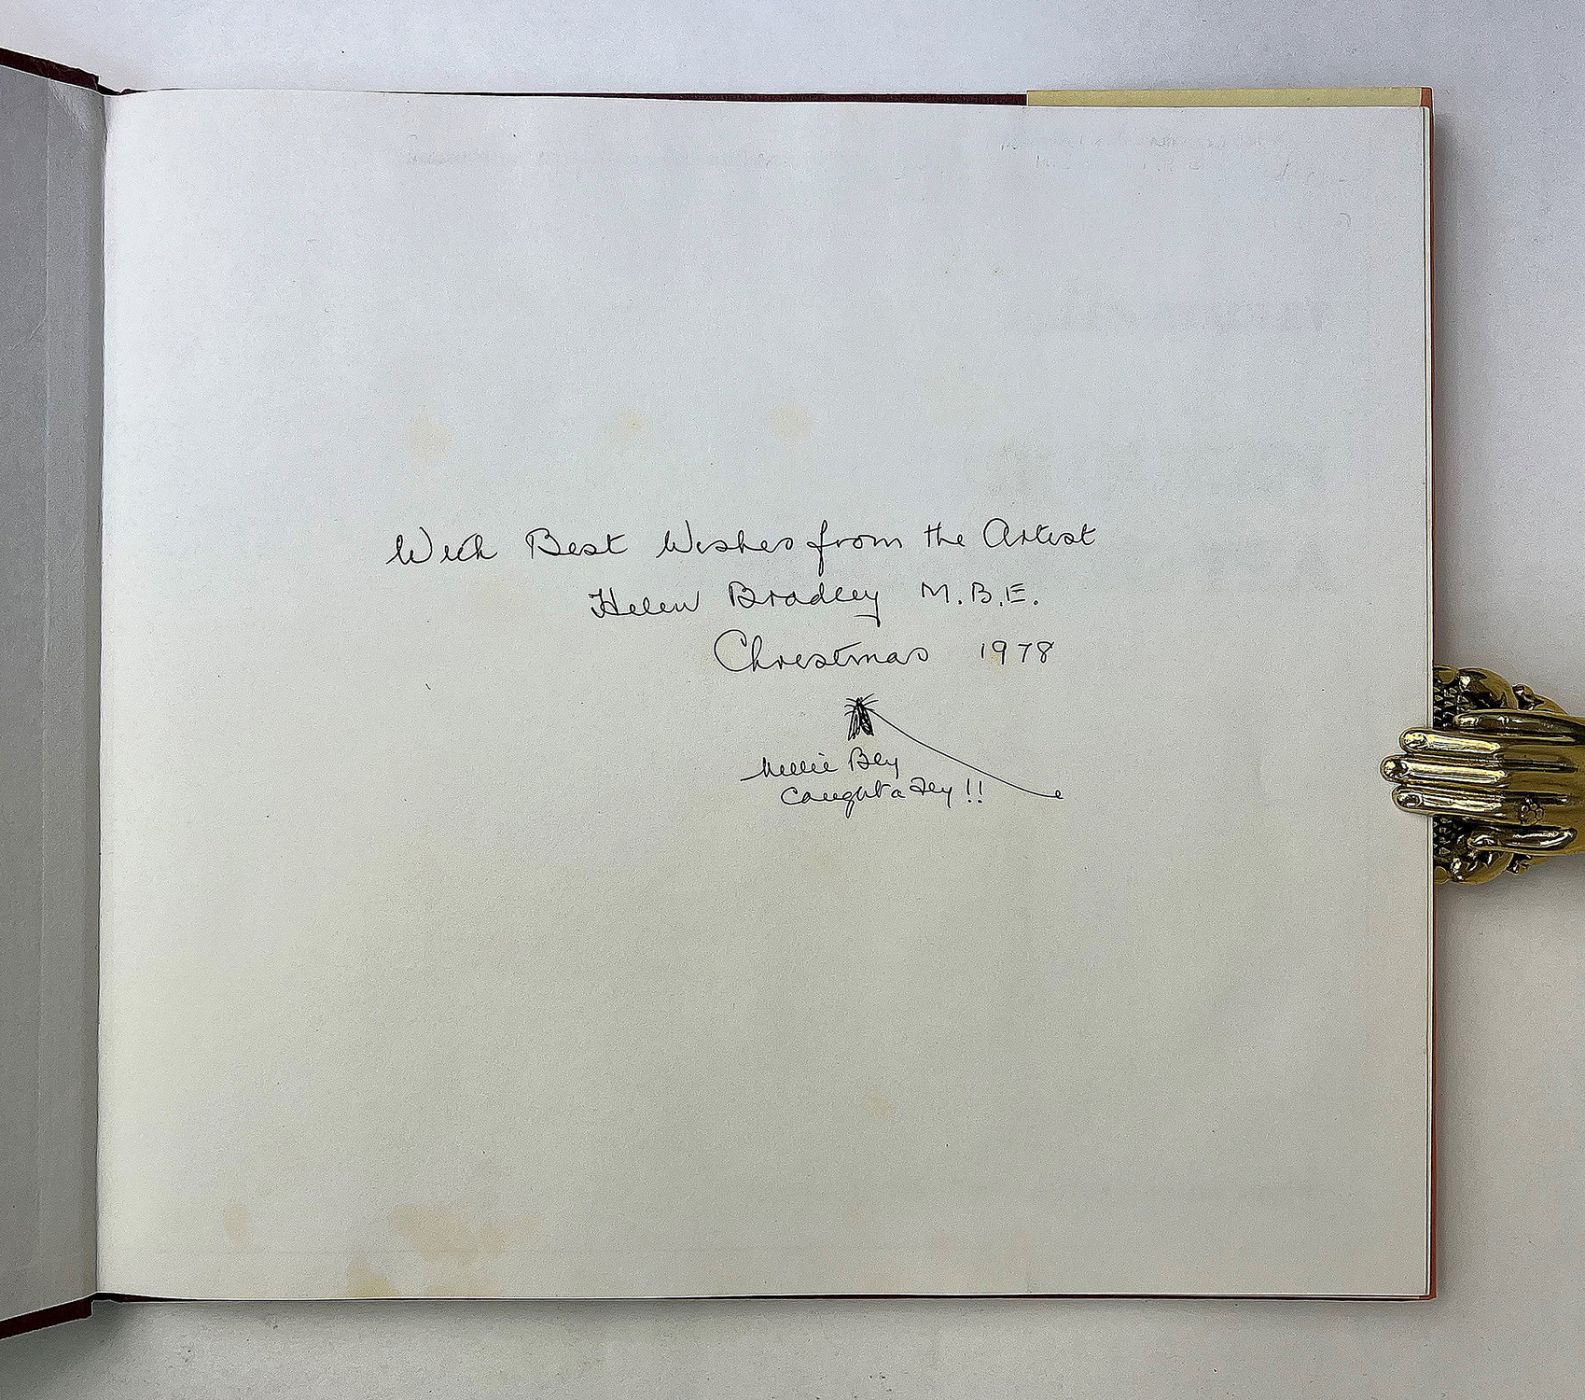 With Best Wishes from the Artist
Helen Bradley M.B.E.
Christmas 1978
Nellie Bly
Caught a Fly !!